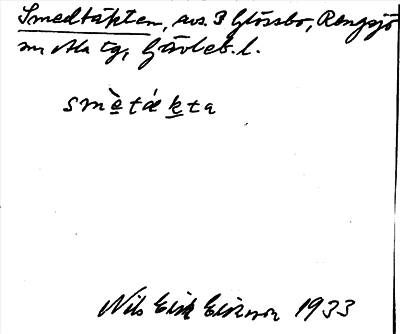 Smedtäkten, avs. 3 Glössbo, Rengsjö
sn Ala tg, Gävleb. l.
smè̱tákṯa
Nils Erik Eriksson 1933